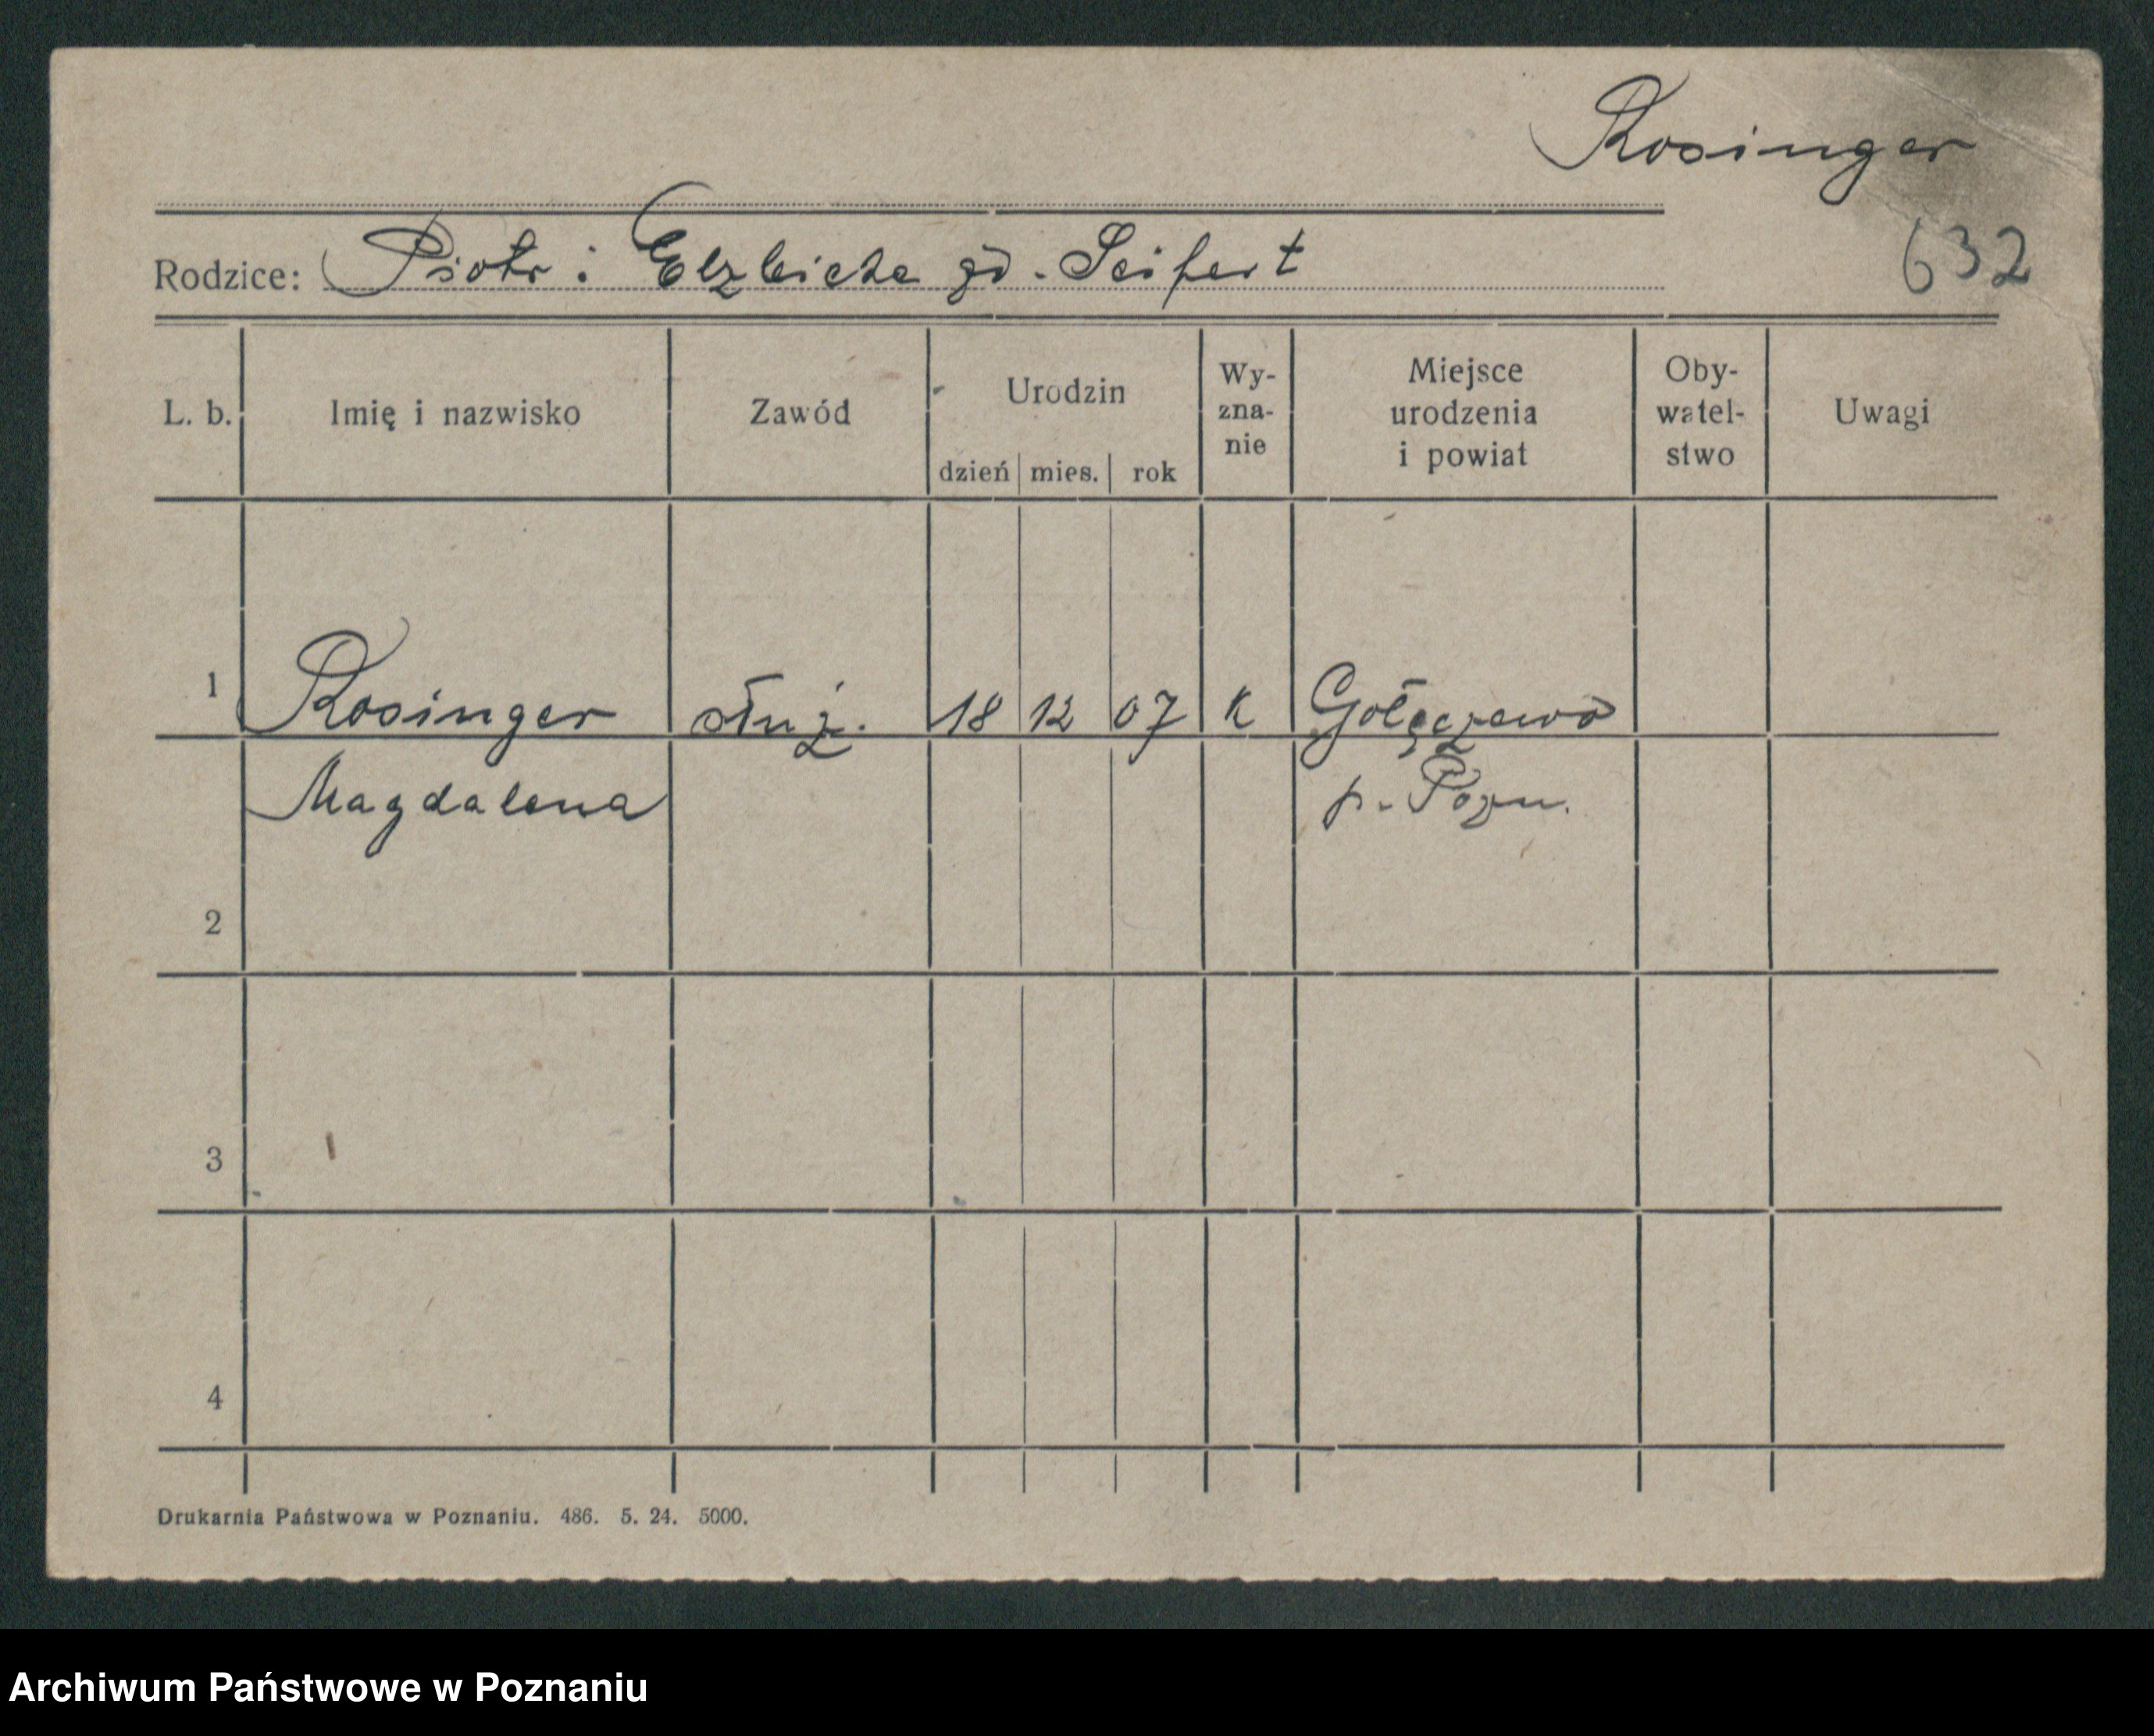 Rosinger
Rodzice: Piotr i Elzbieta gd. Seifert
632
L. b. Imię i nazwisko Zawód Urodzin dzień mies. rok Wy-zna-nie Miejsce urodzenia i powiat Oby-watel-stwo Uwagi
1 Rosinger służ. 18 12 07 K Golęczewo
Magdalena p. Pozn.
2
3
4
Drukarnia Państwowa w Poznaniu. 486. 5. 24. 5000.
Archiwum Państwowe w Poznaniu